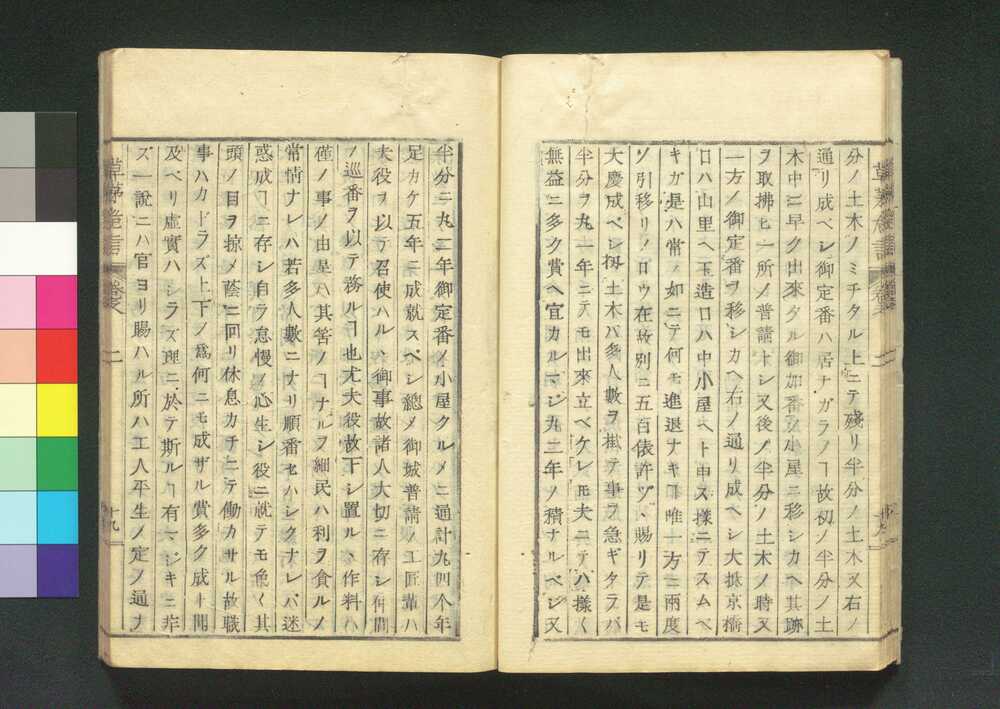 分ノ土木ノミチタル上ニテ殘リ半分ノ土木又右ノ
通リ成ベシ御定番ハ居ナガラノヿ故初ノ半分ノ土
木中ニ早ク出來タル御加番ノ小屋ニ移シカヘ其跡
ヲ取拂ヒ一所ノ普請トシ又後ノ半分ノ土木ノ時又
一方ノ御定番ヲ移シカヘ右ノ通リ成ヘシ大抵京橋
口ハ山里ヘ玉造口ハ中小屋ヘト申ス樣ニテスムベ
キガ是ハ常ノ如ニテ何モ進退ナキヿ唯一方ニ兩度
ノ引移リノロウ在故別ニ五百俵許ヅヽ賜リテ是モ
大慶成ベシ扨土木バ多人數ヲ掛テ事ヲ急ギタラバ
半分ヲ九一年ニテモ出來立ベケレ𪜈夫ニテハ様々
無益ニ多ク費ヘ宜カルマジ九二年ノ積ナルベシ又
半分ニ九二年御定番ノ小屋クルメニ通計九四个年
足カケ五年ニ成就スベシ總メ御城普請ノ工匠輩ハ
夫役ヲ以テ召使ハル御事故諸人大切ニ存シ仲間
ノ巡番ヲ以テ務ルヿ也尤夫役故下シ置ルヽ作料ハ
僅ノ事ノ由是ハ其筈ノヿナルヲ細民ハ利ヲ食ルノ
常情ナレハ若多人數ニナリ順番セハシクナレバ迷
惑成ヿニ存シ自ラ怠慢ノ心生シ役ニ就テモ兔ク其
頭ノ目ヲ掠メ蔭ニ回リ休息カチニテ働カサル故職
事ハカドラズ上下ノ爲何ニモ成ザル費多ク成ト聞
及ベリ虛實ハシラズ理ニ於テ斯ルヿ有マジキニ非
ズ一說ニハ官ヨリ賜ハル所ハ工人平生ノ定ノ通ナ
草茅危言
卷之
二
十九